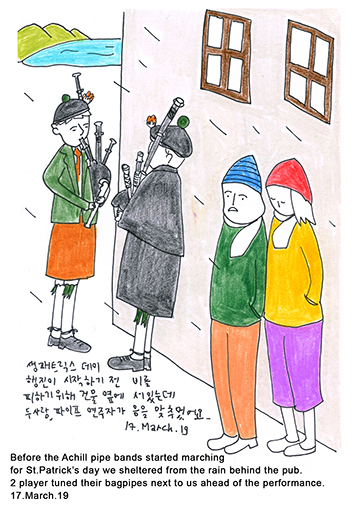 생패트릭스 데이
행진이 시작하기 전 비를
피하기 위해 건물 옆에 서있는데
두사람 파이프 연주자가 음을 맞추었어요.
17.March.19
Before the Achill pipe bands started marching
for St.Patrick's day we sheltered from the rain behind the pub.
2 player tuned their bagpipes next to us ahead of the performance.
17.March.19